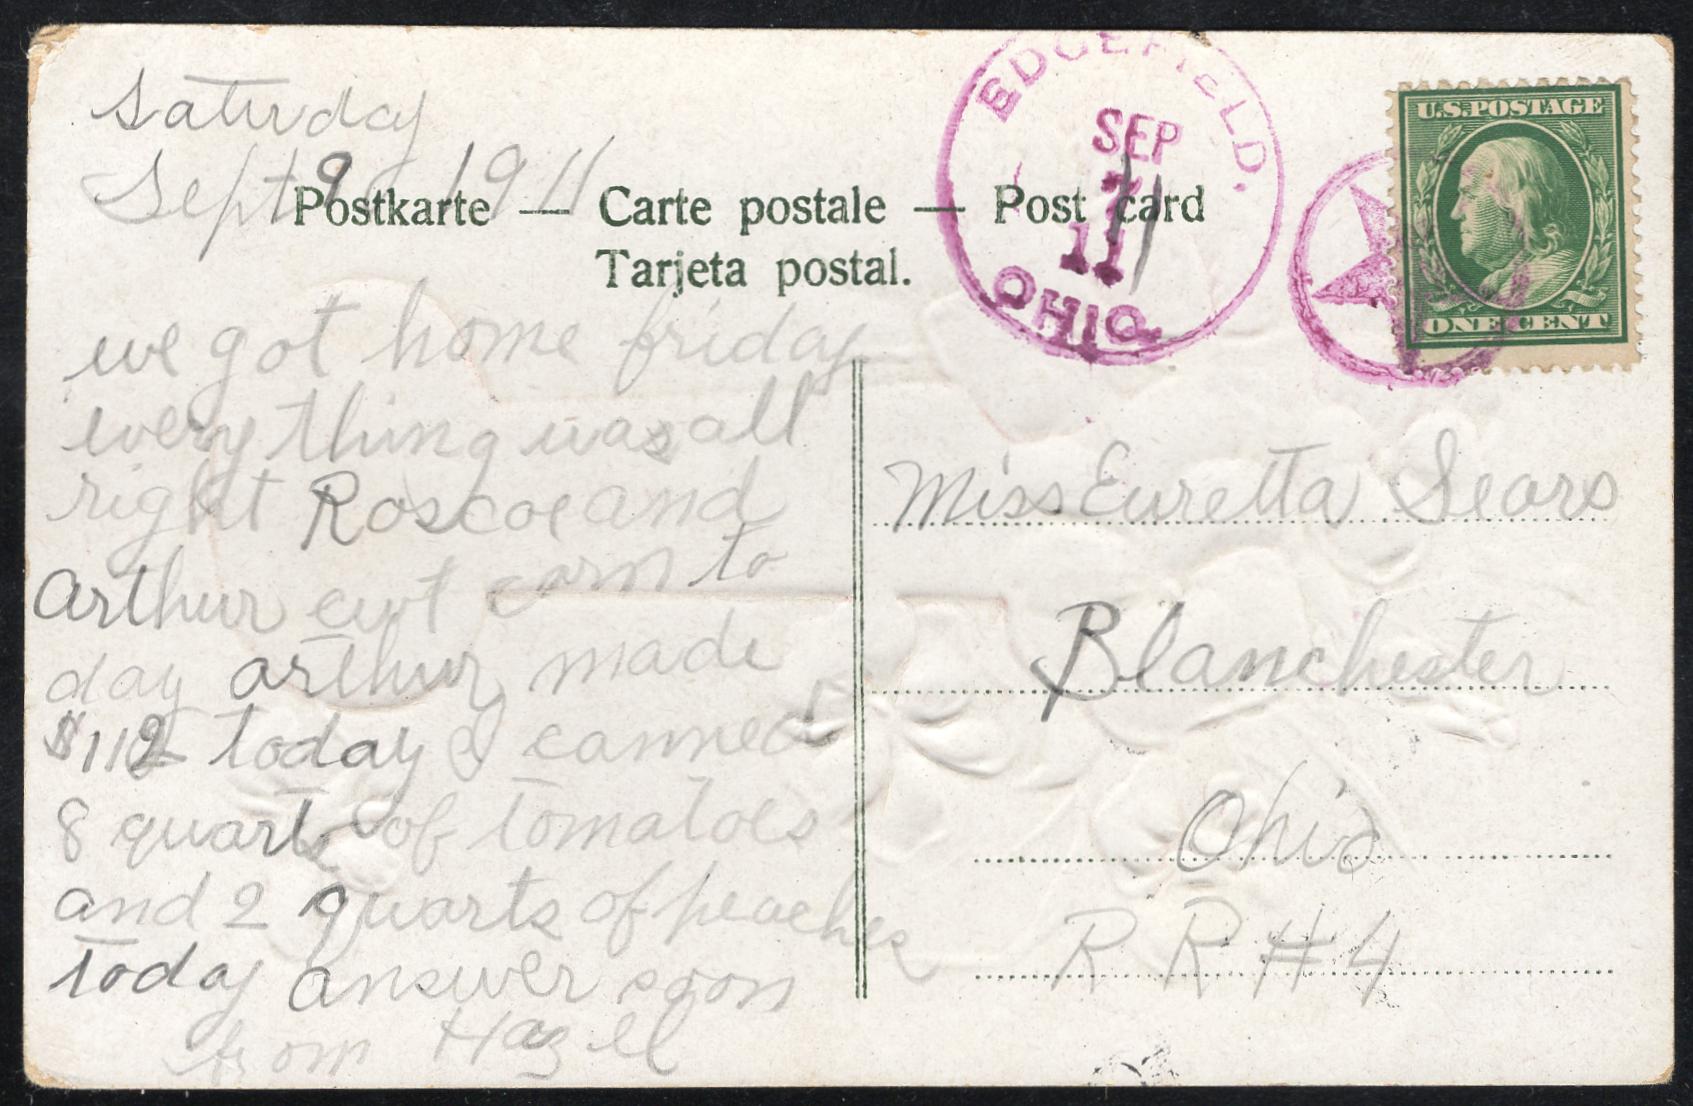 Saturday
Sept 9 1911
Postkarte — Carte postale — Post card
Tarjeta postal.
EDGEFIELD.
SEP
11
OHIO.
U.S. POSTAGE
ONE CENT
we got home friday
every thing was all
right Roscoe and
Arthur cut corn to
day arthur made
$1.12 today I canned
8 quarts of tomatoes
and 2 quarts of peaches
today answer soon
from Hazell
Miss Euretta Sears
Blanchester
Ohio
R R #4